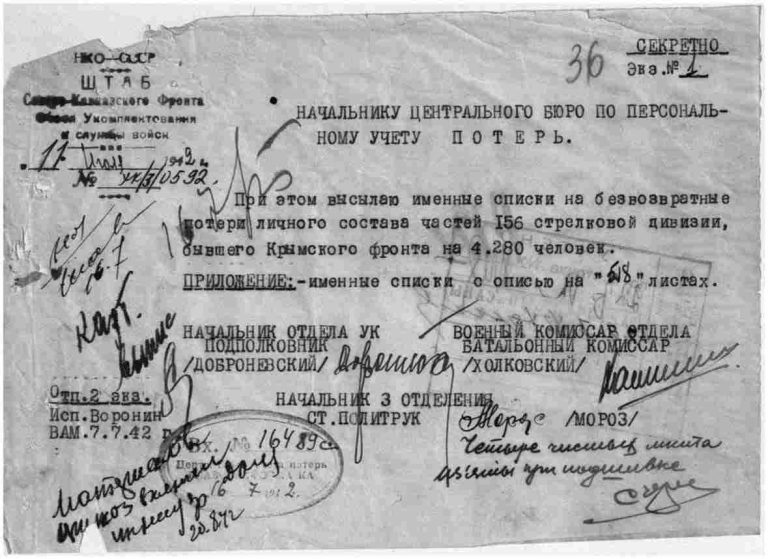 36
СЕКРЕТНО
Экз.№ 1
НКО-СССР
ШТАБ
Северо-Кавказского Фронта
Отдел Укомплектования
и службы войск
11 Июля 1942 г.
№ УК/3/0592
НАЧАЛЬНИКУ ЦЕНТРАЛЬНОГО БЮРО ПО ПЕРСОНАЛЬ-
НОМУ УЧЕТУ ПОТЕРЬ.
При этом высылаю именные списки на безвозвратные
потери личного состава частей I56 стрелковой дивизии,
бывшего Крымского фронта на 4.280 человек.
ПРИЛОЖЕНИЕ:-именные списки с описью на "518" листах.
16.7
НАЧАЛЬНИК ОТДЕЛА УК
ПОДПОЛКОВНИК
/ДОБРОНЕВСКИЙ/
ВОЕННЫЙ КОМИССАР ОТДЕЛА
БАТАЛЬОННЫЙ КОМИССАР
/ХОЛКОВСКИЙ/
НАЧАЛЬНИК 3 ОТДЕЛЕНИЯ
СТ.ПОЛИТРУК
/МОРОЗ/
Отп.2 экз.
Исп.Воронин
ВАМ.7.7.42 г.
Вх. № 16489с
потерь
16 7 1942.
Четыре чистых листа
изъяты при подшивке